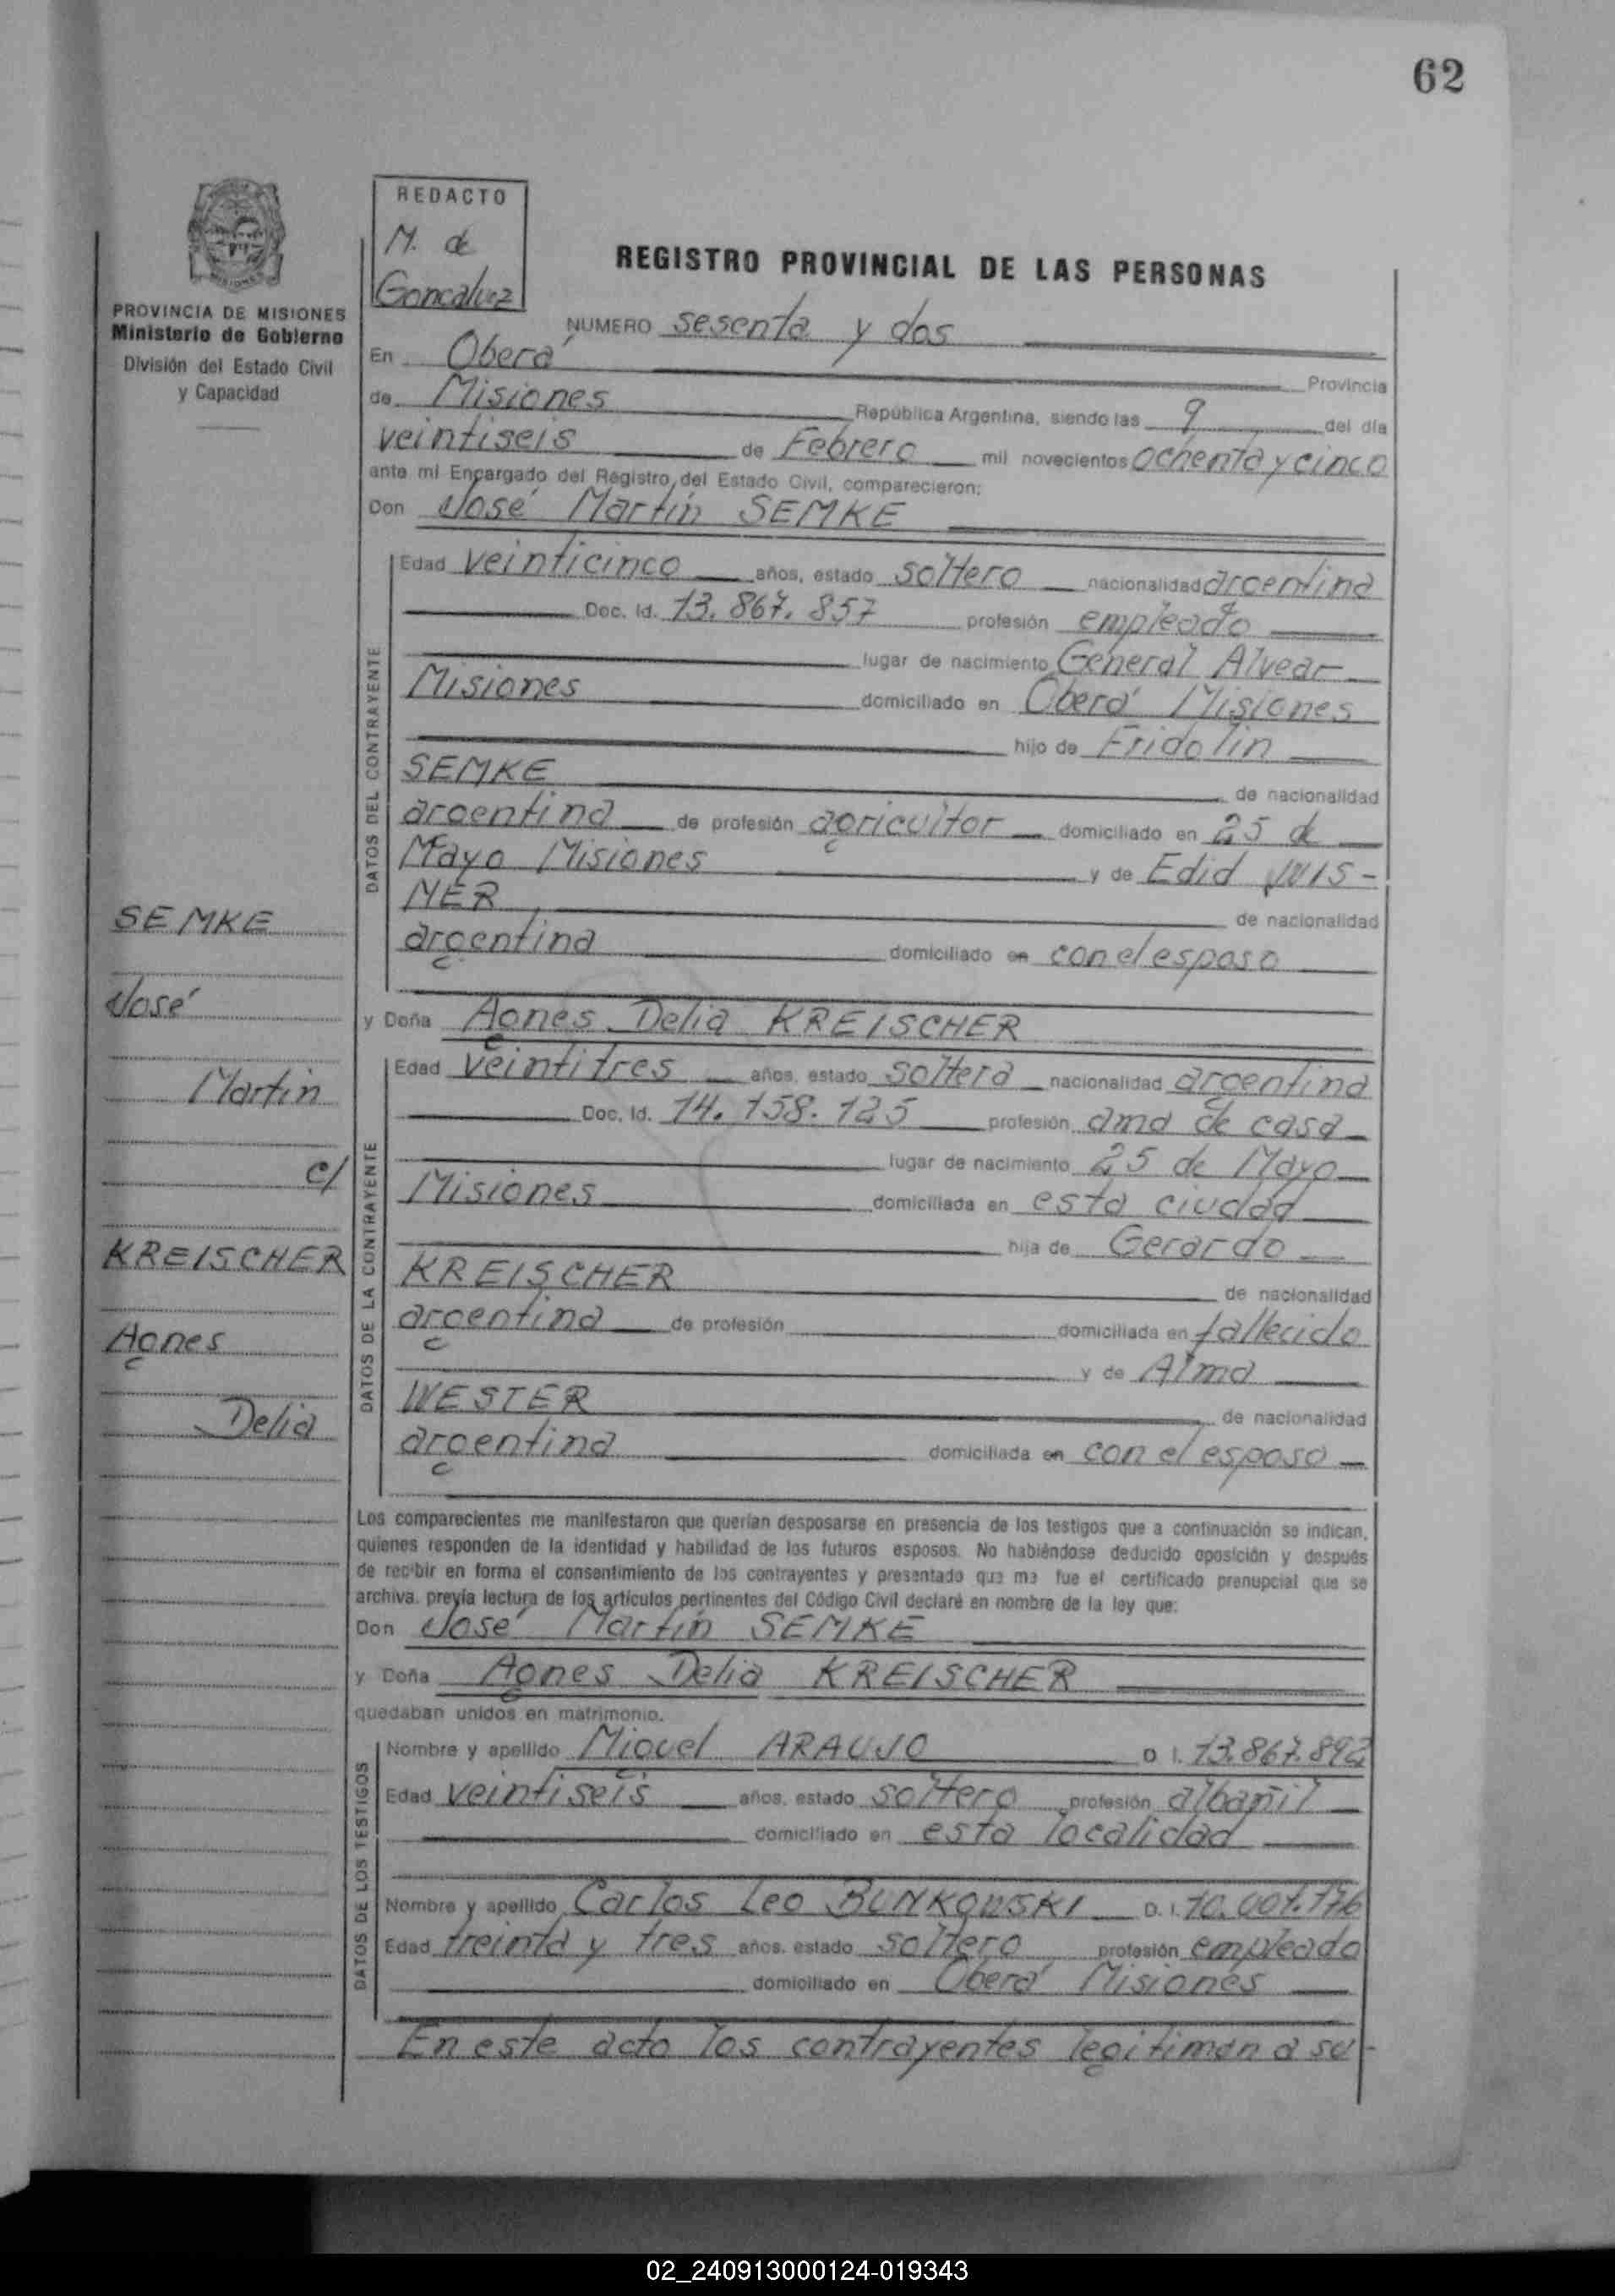 62
REDACTO
M. de
Goncalvez
REGISTRO PROVINCIAL DE LAS PERSONAS
PROVINCIA DE MISIONES
Ministerio de Gobierno
División del Estado Civil
y Capacidad
NUMERO sesenta y dos
En Oberá Provincia
de Misiones República Argentina, siendo las 9 del día
veintiseis de Febrero mil novecientos ochenta y cinco
ante mi Encargado del Registro del Estado Civil, comparecieron:
Don José Martín SEMKE
DATOS DEL CONTRAYENTE
Edad veinticinco años, estado soltero nacionalidad argentina
Doc. Id. 13.867.857 profesión empleado
lugar de nacimiento General Alvear
Misiones domiciliado en Oberá Misiones
hijo de Fridolin
SEMKE de nacionalidad
argentina de profesión agricultor domiciliado en 25 de
Mayo Misiones y de Edid WIS-
NER de nacionalidad
argentina domiciliado en con el esposo
y Doña Agnes Delia KREISCHER
DATOS DE LA CONTRAYENTE
Edad veintitres años, estado soltera nacionalidad argentina
Doc. Id. 14.158.125 profesión ama de casa
lugar de nacimiento 25 de Mayo
Misiones domiciliada en esta ciudad
hija de Gerardo
KREISCHER de nacionalidad
argentina de profesión domiciliada en fallecido
y de Alma
WESTER de nacionalidad
argentina domiciliada en con el esposo
SEMKE
José
Martin
c/
KREISCHER
Agnes
Delia
Los comparecientes me manifestaron que querían desposarse en presencia de los testigos que a continuación se indican,
quienes responden de la identidad y habilidad de los futuros esposos. No habiéndose deducido oposición y después
de recibir en forma el consentimiento de los contrayentes y presentado que me fue el certificado prenupcial que se
archiva, previa lectura de los artículos pertinentes del Código Civil declaré en nombre de la ley que:
Don José Martín SEMKE
y Doña Agnes Delia KREISCHER
quedaban unidos en matrimonio.
DATOS DE LOS TESTIGOS
Nombre y apellido Miguel ARAUJO D I. 13.867.892
Edad veintiseis años, estado soltero profesión albañil
domiciliado en esta localidad
Nombre y apellido Carlos Leo BUNKOWSKI D. I. 10.007.176
Edad treinta y tres años, estado soltero profesión empleado
domiciliado en Oberá Misiones
En este acto los contrayentes legitiman a su-
02_240913000124-019343